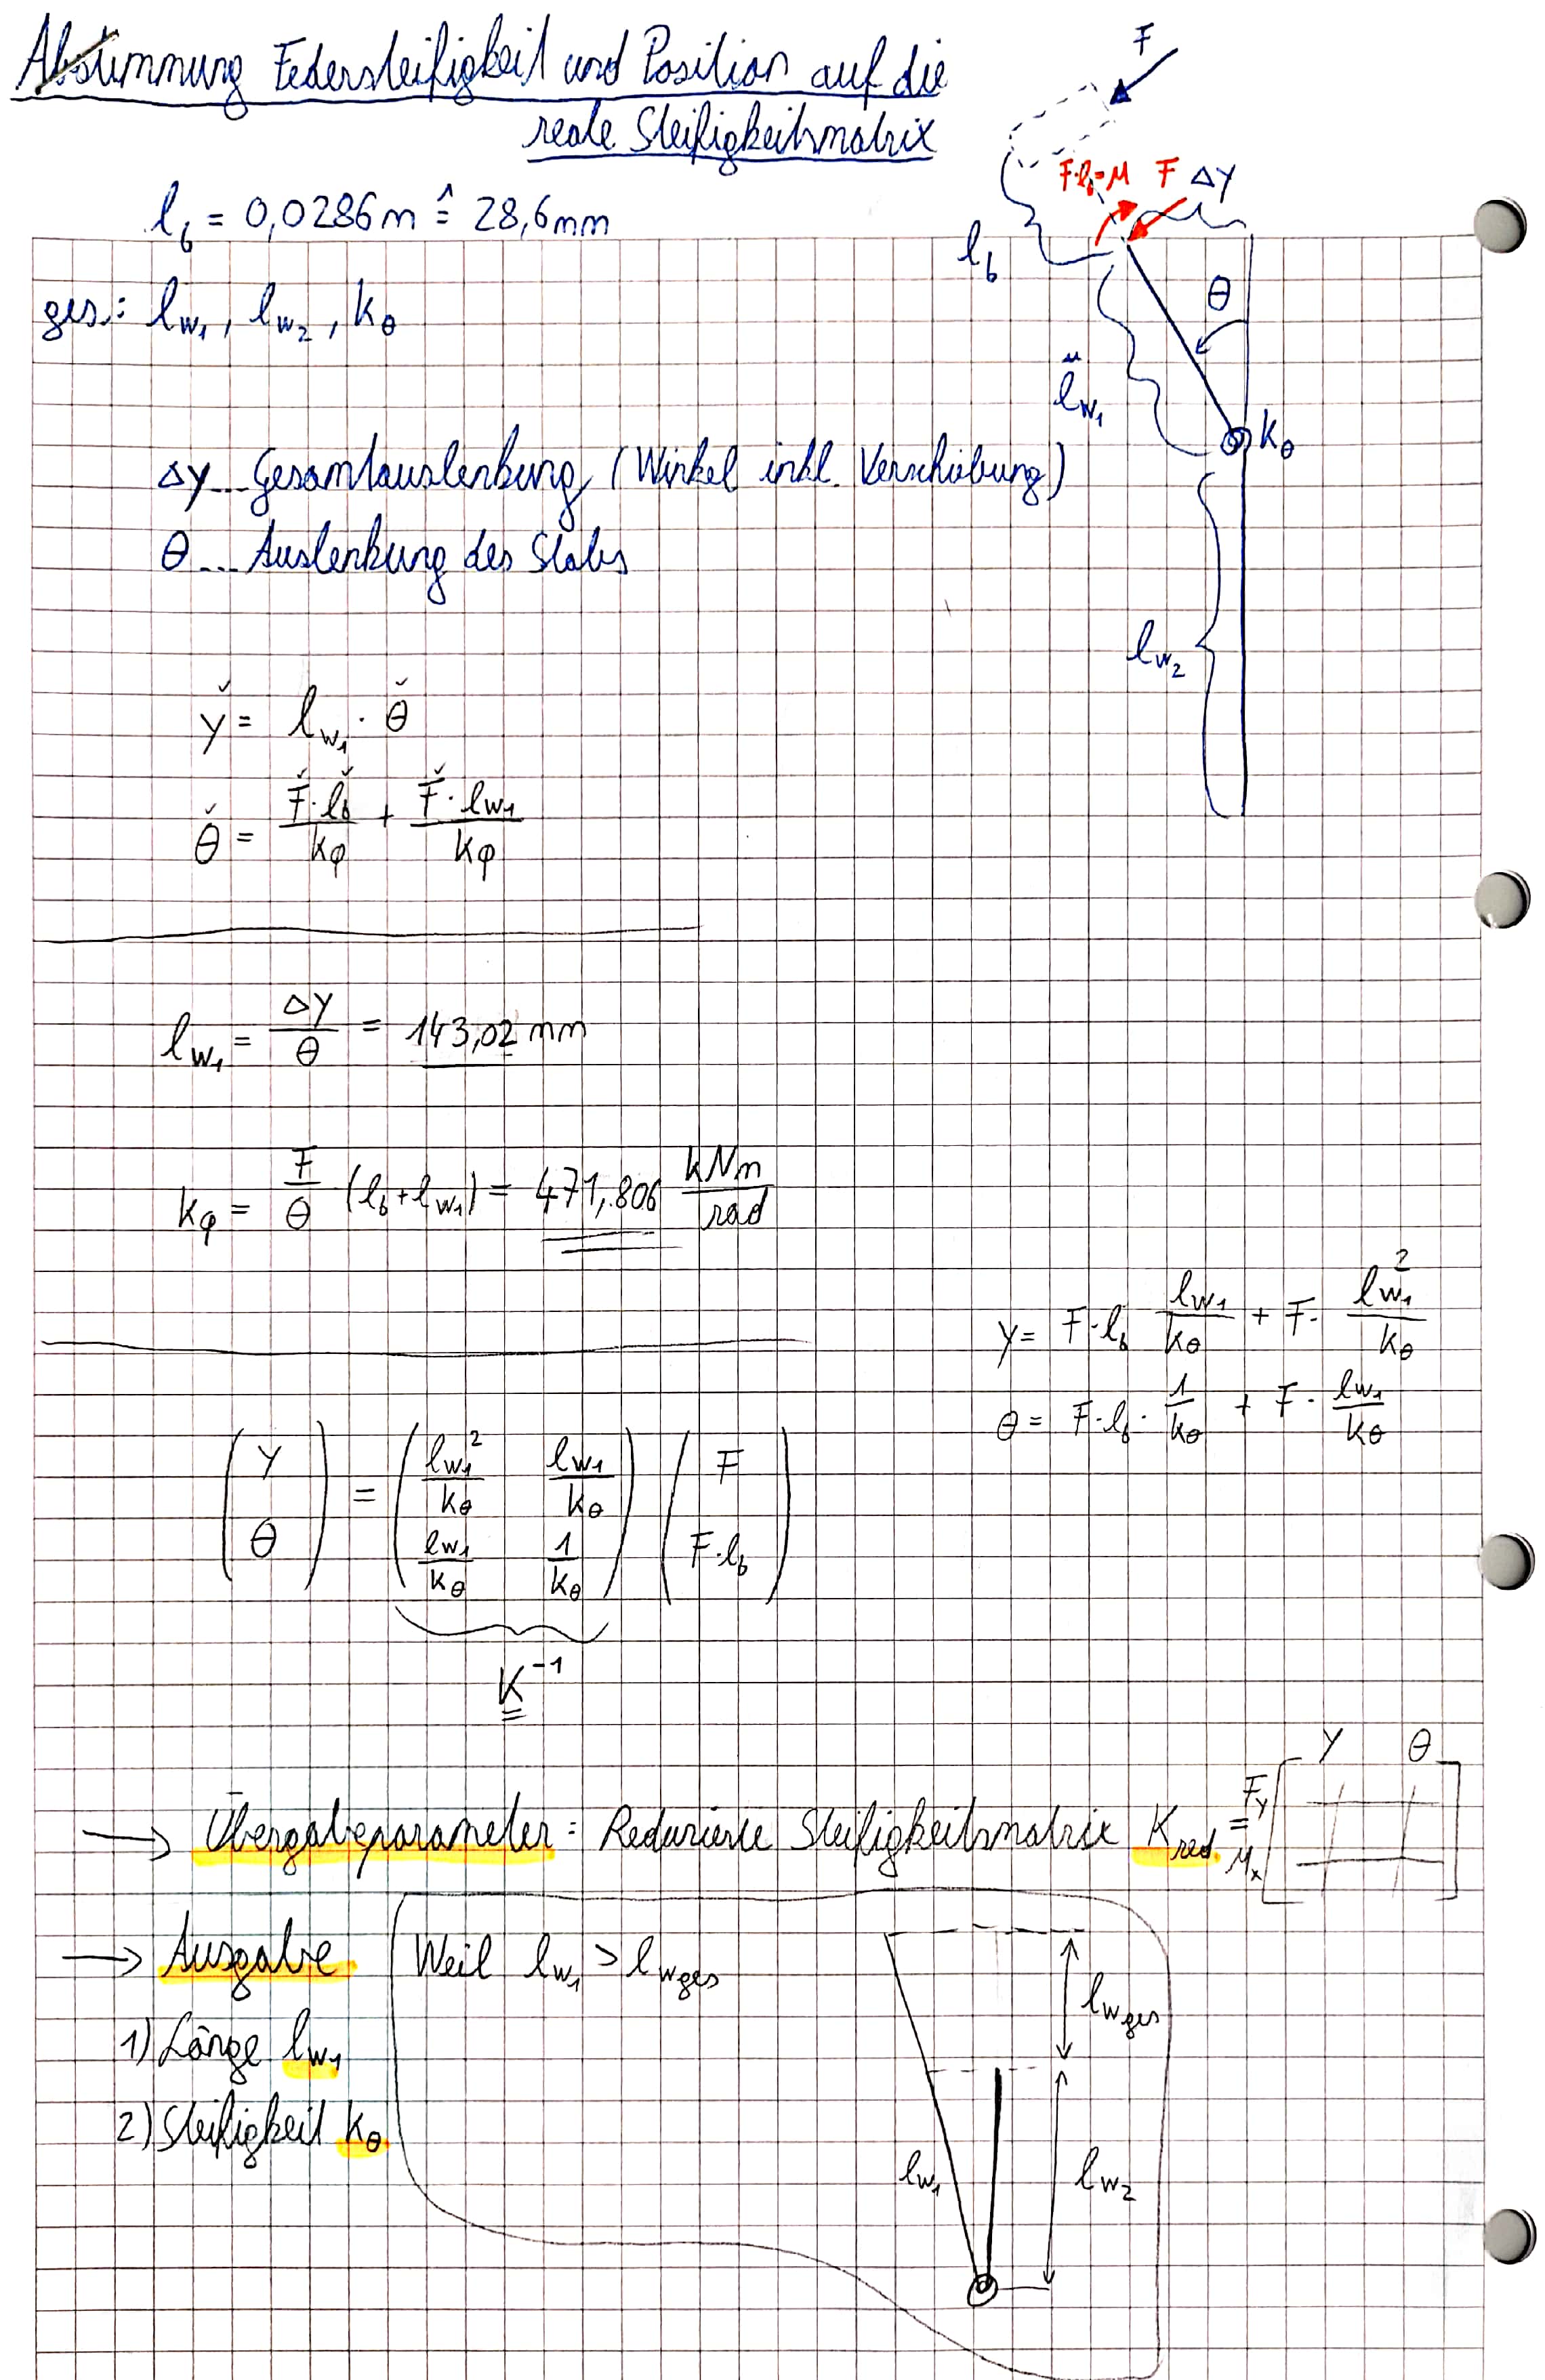 Abstimmung Federsteifigkeit und Position auf die
reale Steifigkeitsmatrix
F
F·l_b=M F ΔY
l_b = 0,0286m ≙ 28,6mm
l_b
θ
ges.: l_w1, l_w2, k_θ
l_w1
k_θ
ΔY... Gesamtauslenkung (Winkel inkl. Verschiebung)
θ... Auslenkung des Stabes
l_w2
y = l_w1 · θ
θ = F·l_b/kφ + F·l_w1/kφ
l_w1 = ΔY/θ = 143,02 mm
kφ = F/θ (l_b + l_w1) = 471,806 kNm/rad
y = F·l_b l_w1/k_θ + F· l_w1²/k_θ
θ = F·l_b · 1/k_θ + F · l_w1/k_θ
(Y θ) = (l_w1²/k_θ l_w1/k_θ l_w1/k_θ 1/k_θ) (F F·l_b)
K⁻¹
Y θ
→ Übergabeparameter: Reduzierte Steifigkeitsmatrix K_red = F_y M_x [ ]
→ Ausgabe
Weil l_w1 > l_wges
l_wges
1) Länge l_w1
2) Steifigkeit k_θ
l_w1
l_w2